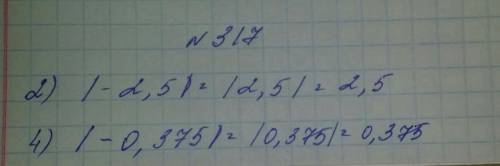 №317
2) |-2,5|= |2,5|= 2,5
4) |-0,375|= |0,375|= 0,375